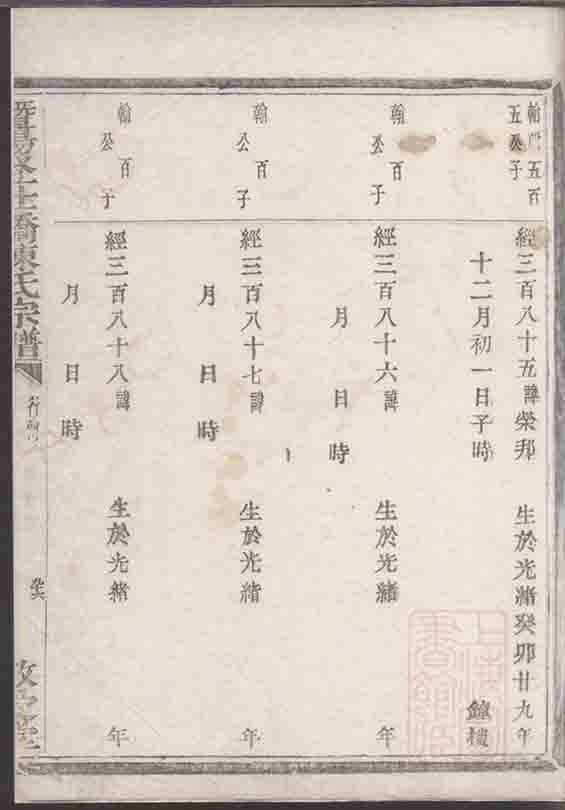 五百
五公子
經三百八十五諱榮邦 生於光緒癸卯廿九年
十二月初一日子時 鐘樓
翰 百
公 子
經三百八十六諱 生於光緒 年
月 日 時
翰 百
公 子
經三百八十七諱 生於光緒 年
月 日 時
翰 百
公 子
經三百八十八諱 生於光緒 年
月 日 時
橋陳氏宗譜